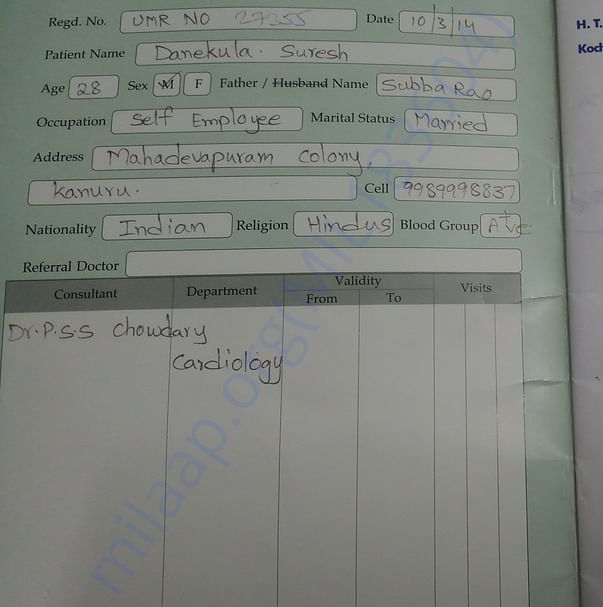 Regd. No. UMR NO 27355 Date 10/3/14
Patient Name Danekula. Suresh
Age 28 Sex M F Father / Husband Name Subba Rao
Occupation Self Employee Marital Status Married
Address Mahadevapuram colony,
Kanuru. Cell 9989998837
Nationality Indian Religion Hindus Blood Group A+ve
Referral Doctor
Consultant Department Validity Visits
From To
Dr.P.S.S Chowdary
Cardiology
milaap.org(MIL183604)
H. T.
Koch